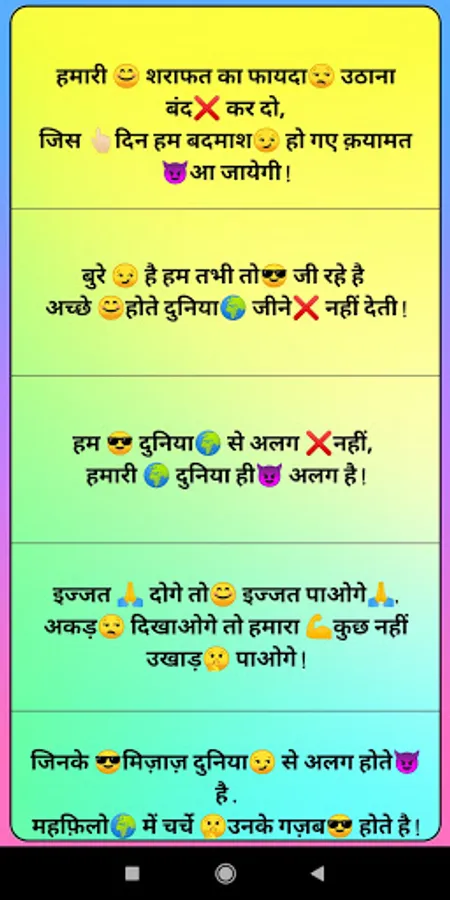 हमारी 😊 शराफत का फायदा😒 उठाना
बंद❌ कर दो,
जिस 👆🏻दिन हम बदमाश😏 हो गए क़यामत
😈आ जायेगी!
बुरे 😏 है हम तभी तो😎 जी रहे है
अच्छे 😊होते दुनिया🌍 जीने❌ नहीं देती!
हम 😎 दुनिया🌍 से अलग ❌नहीं,
हमारी 🌍 दुनिया ही😈 अलग है!
इज्जत 🙏 दोगे तो😊 इज्जत पाओगे🙏.
अकड़😒 दिखाओगे तो हमारा 💪कुछ नहीं
उखाड़🤫 पाओगे!
जिनके 😎मिज़ाज़ दुनिया😏 से अलग होते😈
है.
महफ़िलो🌍 में चर्चे 🤫उनके गज़ब😎 होते है!